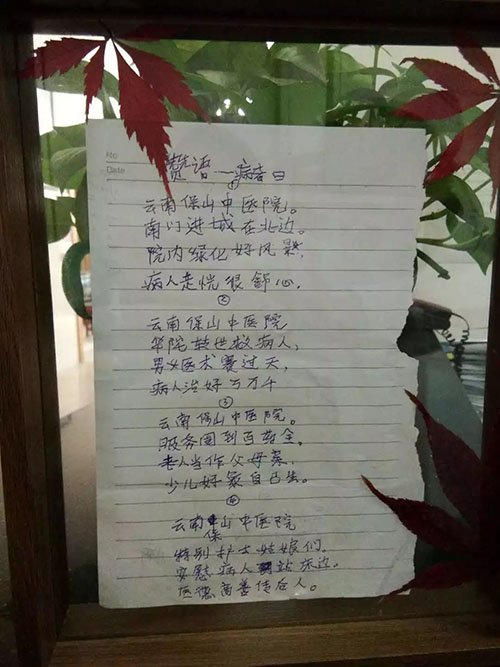 No
Date
赞语一病者曰
①
云南保山中医院。
南门进城在北边。
院内绿化好风景,
病人走恍很舒心.
②
云南保山中医院
华陀转世救病人,
男女医术赛过天,
病人治好万万千
③
云南保山中医院。
服务周到百药全,
老人当作父母亲,
少儿好象自己生。
④
云南保山中医院
特别护士姑娘们。
安慰病人站床边。
医德高善传后人。